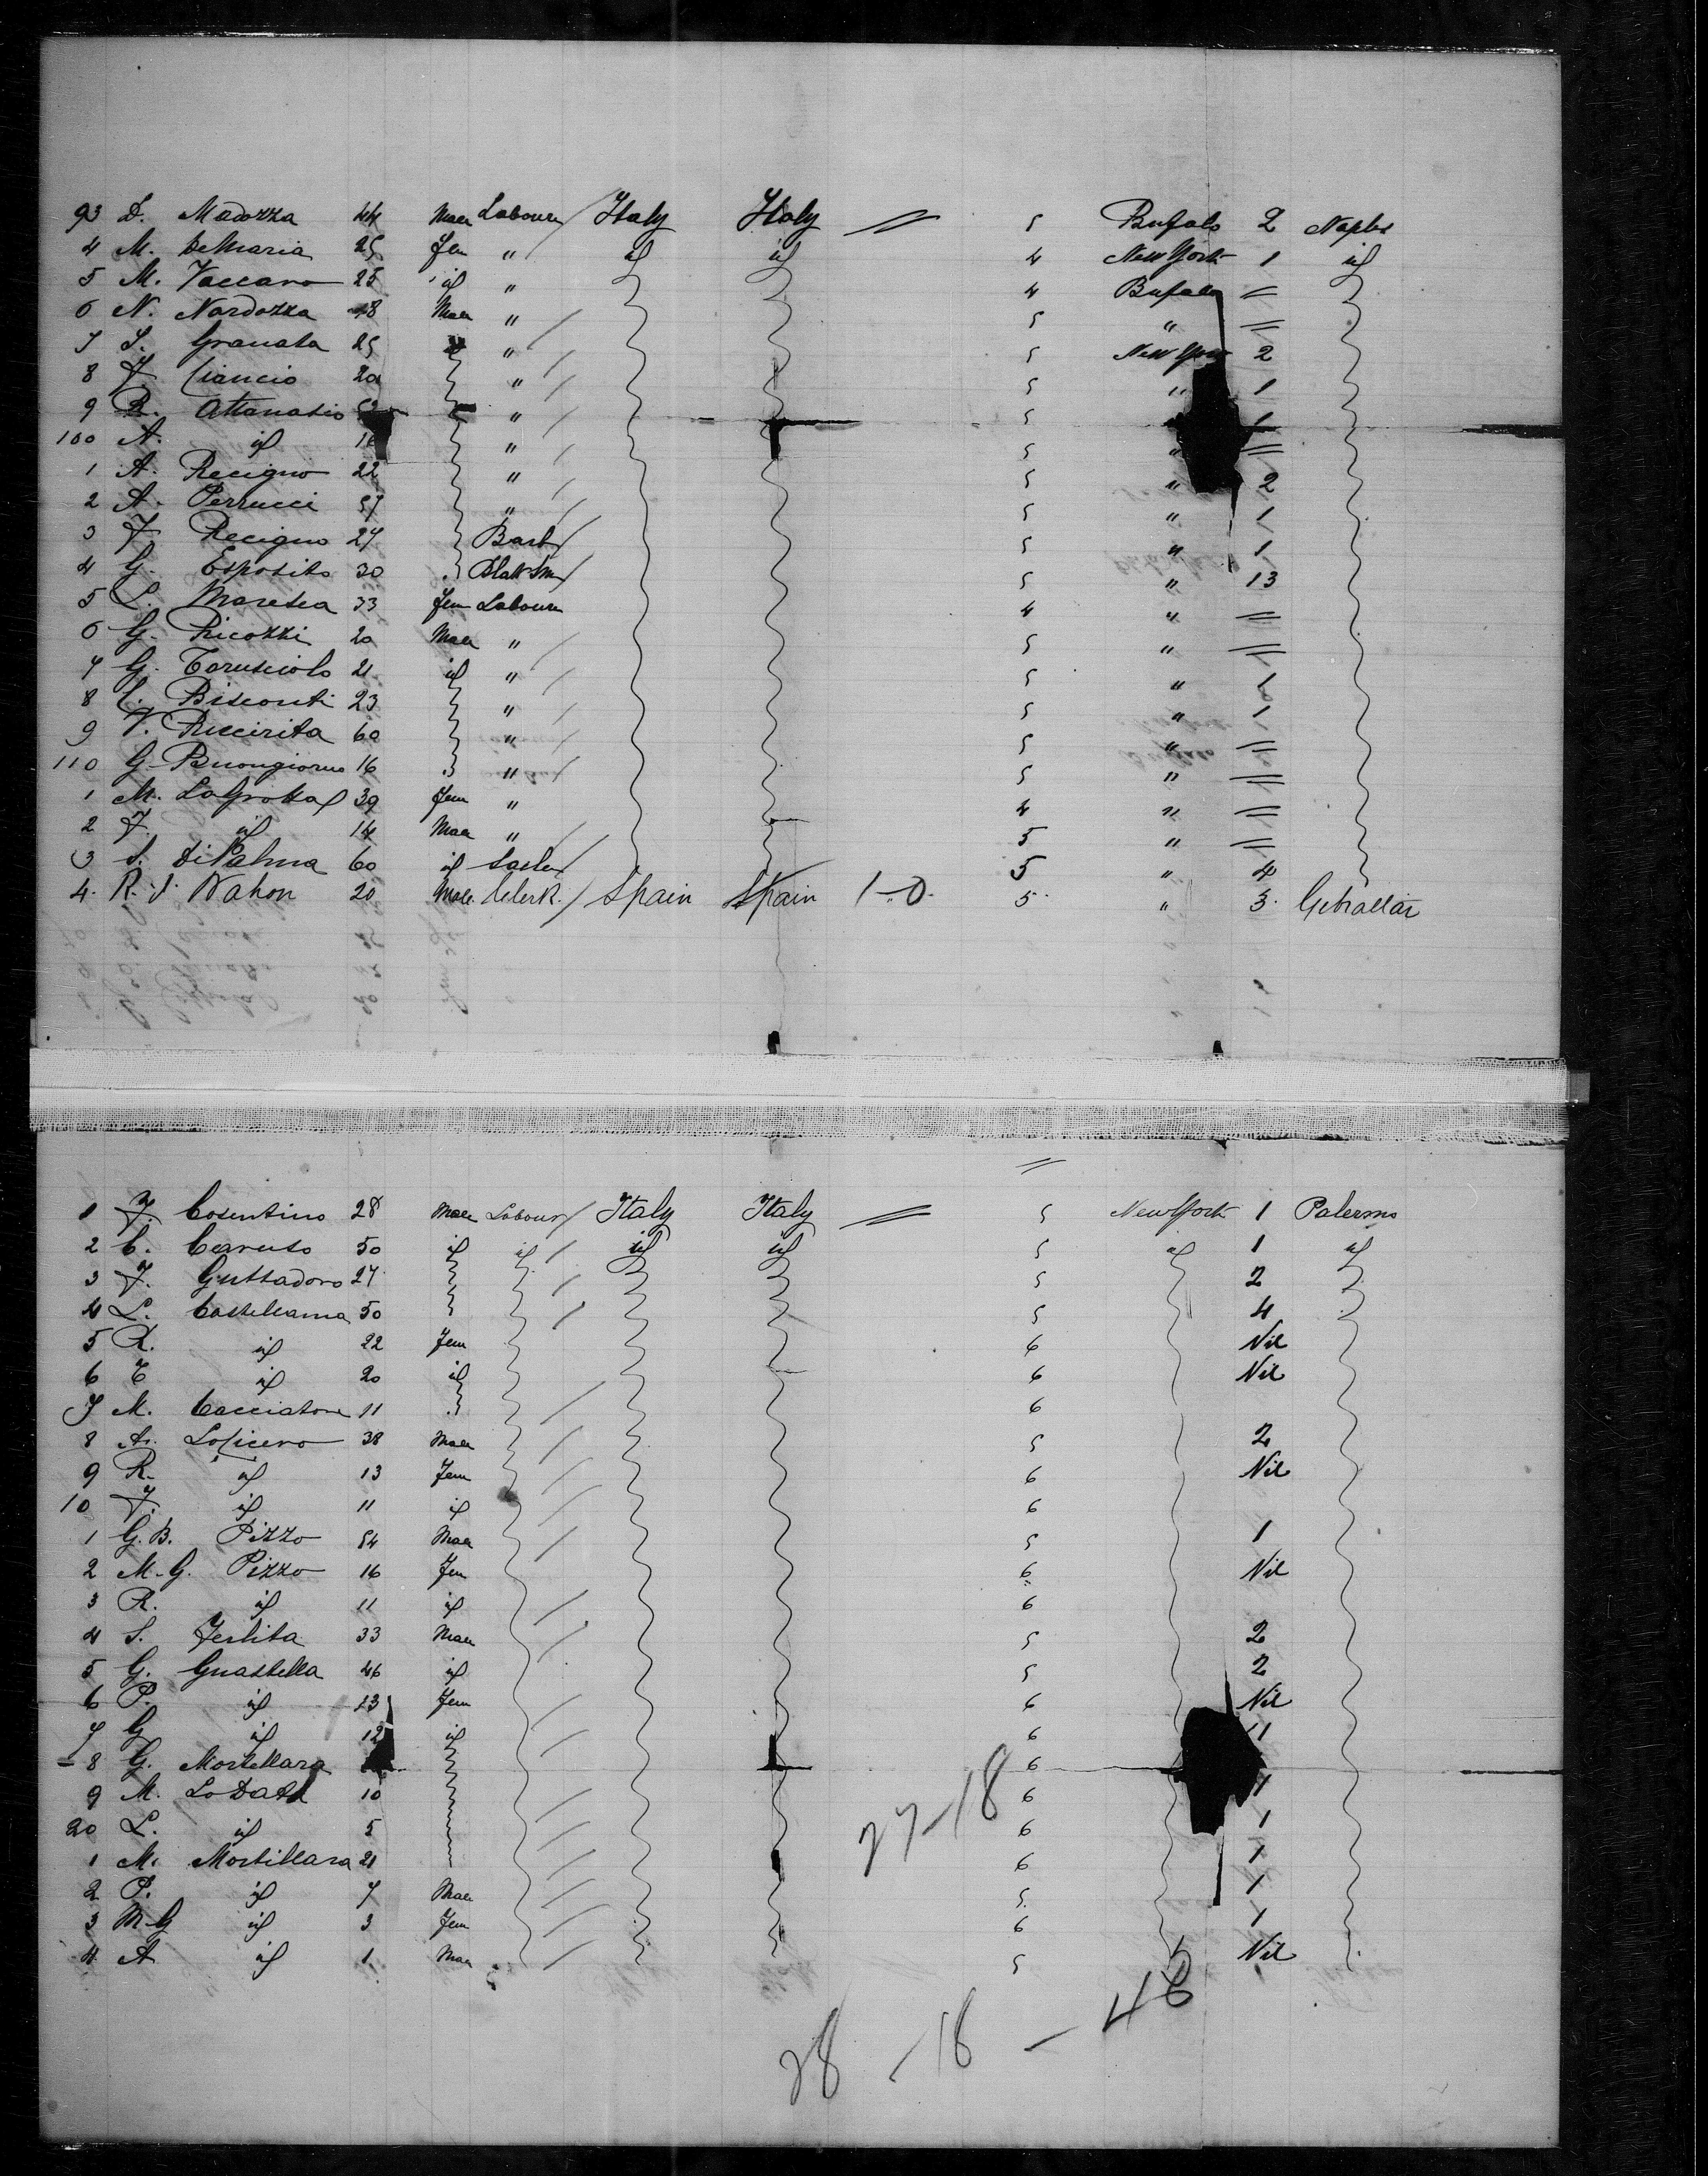 93 D. Madozza 44 Male Labourer / Italy Italy = 5 Bufalo 2 Naples
4 M. DeMaria 25 Fem " id id 4 New York 1 id
5 M. Vaccaro 25 id " 4 Bufalo =
6 N. Nardozza 48 Male " / 5 " =
7 S. Granata 25 " / 5 New York 2
8 F. Ciancio 20 " / 5 " 1
9 R. Attanasio " / 5 1
100 A. id " / 5 " =
1 A. Recigno 22 " / 5 " 2
2 A. Perrucci 57 " / 5 " 1
3 F. Recigno 27 Barb / 5 " 1
4 G. Esposito 30 / 5 " 13
5 L. Maresca 33 Fem Labourer 4 " =
6 G. Ricozzi 20 Male " / 5 " =
7 G. Torusciolo 21 id " / 5 " 1
8 C. Bisconti 23 " / 5 " 1
9 V. 60 " / 5 " =
110 G. Buongiorno 16 " / 5 " =
1 M. LaGrotta 39 Fem " 4 " =
2 F. id 14 Male " / 5 " =
3 S. DiPalma 60 id / 5 " 4
4. R. J. Nahon 20 Male. Clerk. / Spain Spain 1-0. 5. " 3. Gibraltar
=
1 F. Cosentino 28 Male Labour / Italy Italy = 5 New York 1 Palermo
2 C. Caruso 50 id id / id id 5 id 1 id
3 F. Guttadoro 27 / 5 2
4 L. Castellana 50 / 5 4
5 R. id 22 Fem 6 Nil
6 C id 20 id 6 Nil
7 M. Cacciatore 11 / 6
8 A. LoCicero 38 Male / 5 2
9 R. id 13 Fem / 6 Nil
10 F. id 11 id / 6
1 G.B. Pizzo 54 Male / 5 1
2 M.G. Pizzo 16 Fem 6 Nil
3 R. id 11 id / 6
4 S. Ferlita 33 Male / 5 2
5 G. Guastella 46 id 5 2
6 P. id 13 Fem / 6 Nil
7 G id 12 id / 6 11
8 G. Mortellara / 6
9 M. 10 / 6 1
20 L. id 5 / 6 1
1 M. Mortillara 21 / 6 1
2 P. id 7 Male / 5 1
3 M-G id 3 Fem / 6 1
4 A id 1 Male / 5 Nil
27-18
28 - 18 - 46